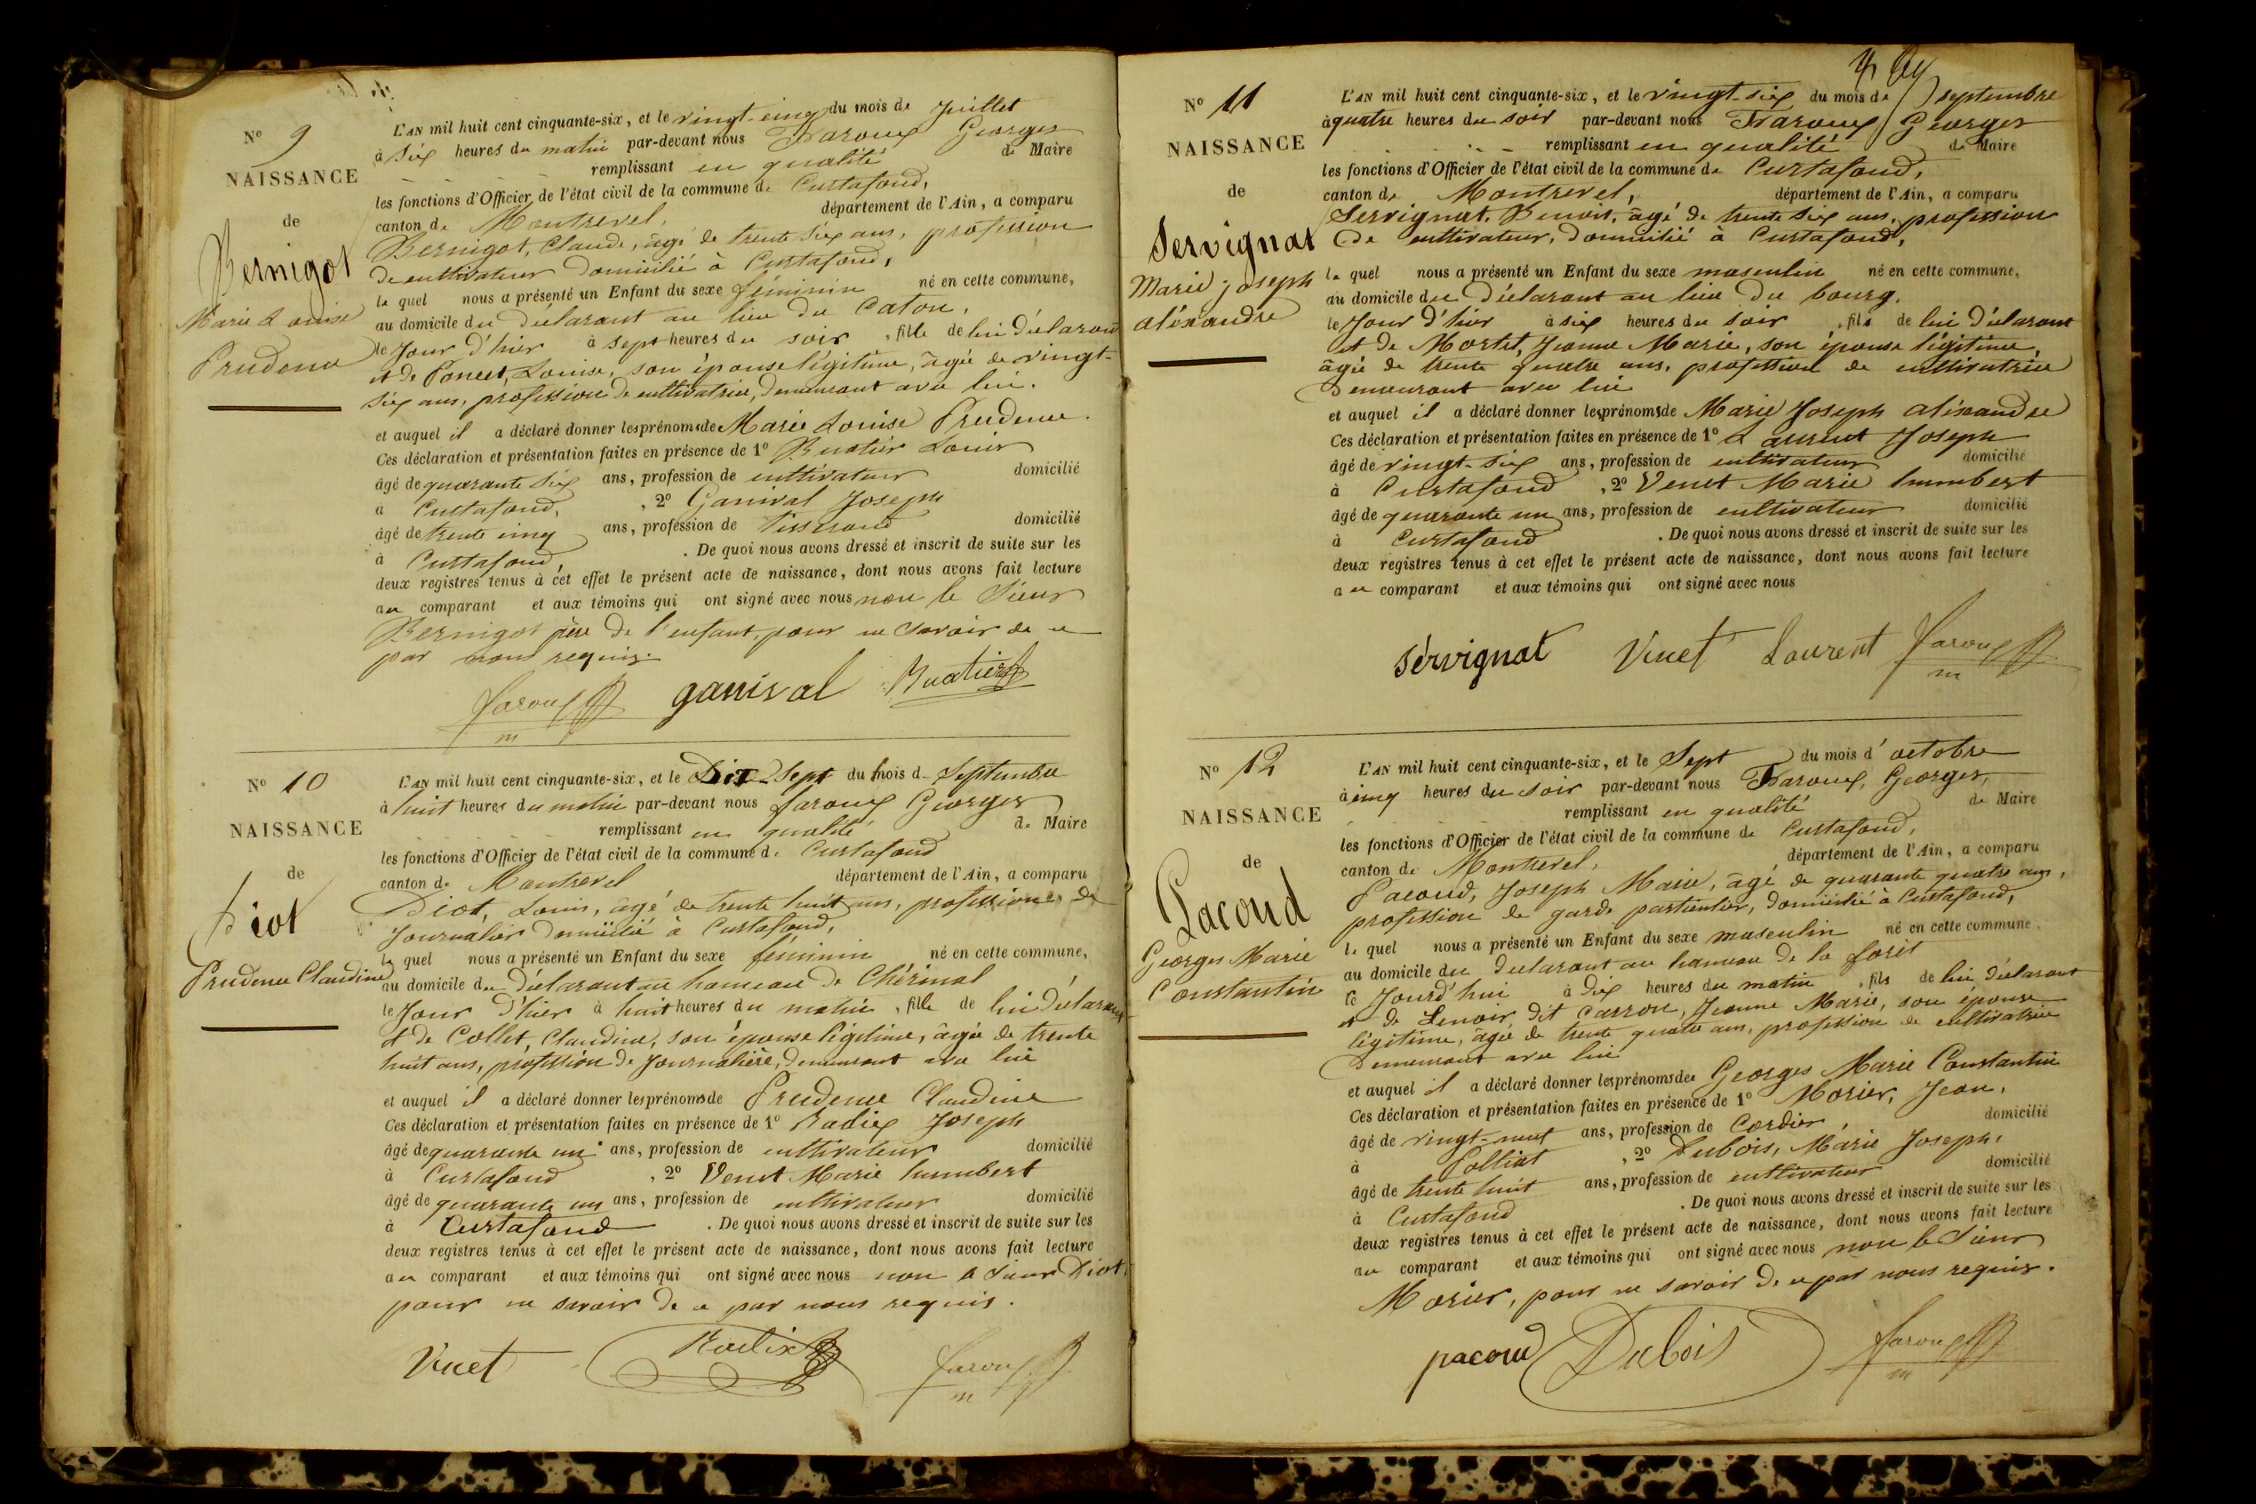 N° 9
NAISSANCE
de
Bernigot
Marie Louise
Prudence
L'AN mil huit cent cinquante-six, et le vingt-cinq du mois de Juillet
à six heures du matin par-devant nous Faroux Georges
remplissant en qualité de Maire
les fonctions d'Officier de l'état civil de la commune de Curtafond,
canton de Montrevel, département de l'Ain, a comparu
Bernigot, Claude, âgé de trente six ans, profession
de cultivateur domicilié à Curtafond,
le quel nous a présenté un Enfant du sexe féminin né en cette commune,
au domicile du déclarant au lieu du Caton,
le Jour d'hier à sept heures du soir, fille de lui déclarant
et de Poncet, Louise, son épouse légitime, âgée de vingt-
six ans, profession de cultivatrice, demeurant avec lui.
et auquel il a déclaré donner les prénoms de Marie Louise Prudence.
Ces déclaration et présentation faites en présence de 1° Buatier Louis
âgé de quarante six ans, profession de cultivateur domicilié
à Curtafond, , 2° Ganival Joseph
âgé de trente cinq ans, profession de tisserand domicilié
à Curtafond, . De quoi nous avons dressé et inscrit de suite sur les
deux registres tenus à cet effet le présent acte de naissance, dont nous avons fait lecture
au comparant et aux témoins qui ont signé avec nous non le Sieur
Bernigot père de l'enfant, pour ne savoir de ce
par nous requis.
faroux ganival Buatier
m
N° 10
NAISSANCE
de
Diot
Prudence Claudine
L'AN mil huit cent cinquante-six, et le Dix Sept du mois de Septembre
à huit heures du matin par-devant nous faroux Georges
remplissant en qualité de Maire
les fonctions d'Officier de l'état civil de la commune de Curtafond
canton de Montrevel département de l'Ain, a comparu
Diot, Louis, âgé de trente huit ans, profession de
Journalier domicilié à Curtafond,
le quel nous a présenté un Enfant du sexe féminin né en cette commune,
au domicile du déclarant au hameau de Chérinal
le Jour d'hier à huit heures du matin, fille de lui déclarant
et de Collet, Claudine, son épouse légitime, âgée de trente
huit ans, profession de Journalière, demeurant avec lui
et auquel il a déclaré donner les prénoms de Prudence Claudine
Ces déclaration et présentation faites en présence de 1° Radix Joseph
âgé de quarante un ans, profession de cultivateur domicilié
à Curtafond , 2° Venet Marie humbert
âgé de quarante un ans, profession de cultivateur domicilié
à Curtafond . De quoi nous avons dressé et inscrit de suite sur les
deux registres tenus à cet effet le présent acte de naissance, dont nous avons fait lecture
au comparant et aux témoins qui ont signé avec nous non le Sieur Diot,
pour ne savoir de ce par nous requis.
Venet Radix faroux
m
N° 11
NAISSANCE
de
Servignat
Marie joseph
aléxandre
L'AN mil huit cent cinquante-six, et le vingt-six du mois de septembre
à quatre heures du soir par-devant nous Faroux Georges
remplissant en qualité de Maire
les fonctions d'Officier de l'état civil de la commune de Curtafond,
canton de Montrevel, département de l'Ain, a comparu
Servignat, Benoit, âgé de trente six ans, profession
de cultivateur, domicilié à Curtafond,
le quel nous a présenté un Enfant du sexe masculin né en cette commune,
au domicile du déclarant au lieu du bourg,
le Jour d'hier à six heures du soir, fils de lui déclarant
et de Mortet, Jeanne Marie, son épouse légitime,
âgée de trente quatre ans, profession de cultivatrice
demeurant avec lui
et auquel il a déclaré donner les prénoms de Marie Joseph alixandre
Ces déclaration et présentation faites en présence de 1° Laurent Joseph
âgé de vingt-six ans, profession de cultivateur domicilié
à Curtafond , 2° Venet Marie humbert
âgé de quarante un ans, profession de cultivateur domicilié
à Curtafond . De quoi nous avons dressé et inscrit de suite sur les
deux registres tenus à cet effet le présent acte de naissance, dont nous avons fait lecture
au comparant et aux témoins qui ont signé avec nous
sérvignat Venet Laurent faroux
m
N° 12
NAISSANCE
de
Pacoud
Georges Marie
Constantin
L'AN mil huit cent cinquante-six, et le Sept du mois d'octobre
à cinq heures du soir par-devant nous Faroux, Georges,
remplissant en qualité de Maire
les fonctions d'Officier de l'état civil de la commune de Curtafond,
canton de Montrevel, département de l'Ain, a comparu
Pacoud, Joseph Marie, âgé de quarante quatre ans,
profession de garde particulier, domicilié à Curtafond,
le quel nous a présenté un Enfant du sexe masculin né en cette commune,
au domicile du déclarant au hameau de la forêt
le Jourd'hui à dix heures du matin, fils de lui déclarant
et de Lenoir dit Carron, Jeanne Marie, son épouse
légitime, âgée de trente quatre ans, profession de cultivatrice
demeurant avec lui
et auquel il a déclaré donner les prénoms de Georges Marie Constantin
Ces déclaration et présentation faites en présence de 1° Morier, Jean,
âgé de vingt-neuf ans, profession de Cordier domicilié
à Polliat , 2° Dubois, Marie Joseph,
âgé de trente huit ans, profession de cultivateur domicilié
à Curtafond . De quoi nous avons dressé et inscrit de suite sur les
deux registres tenus à cet effet le présent acte de naissance, dont nous avons fait lecture
au comparant et aux témoins qui ont signé avec nous non le Sieur
Morier, pour ne savoir de ce par nous requis.
pacoud Dubois faroux
m